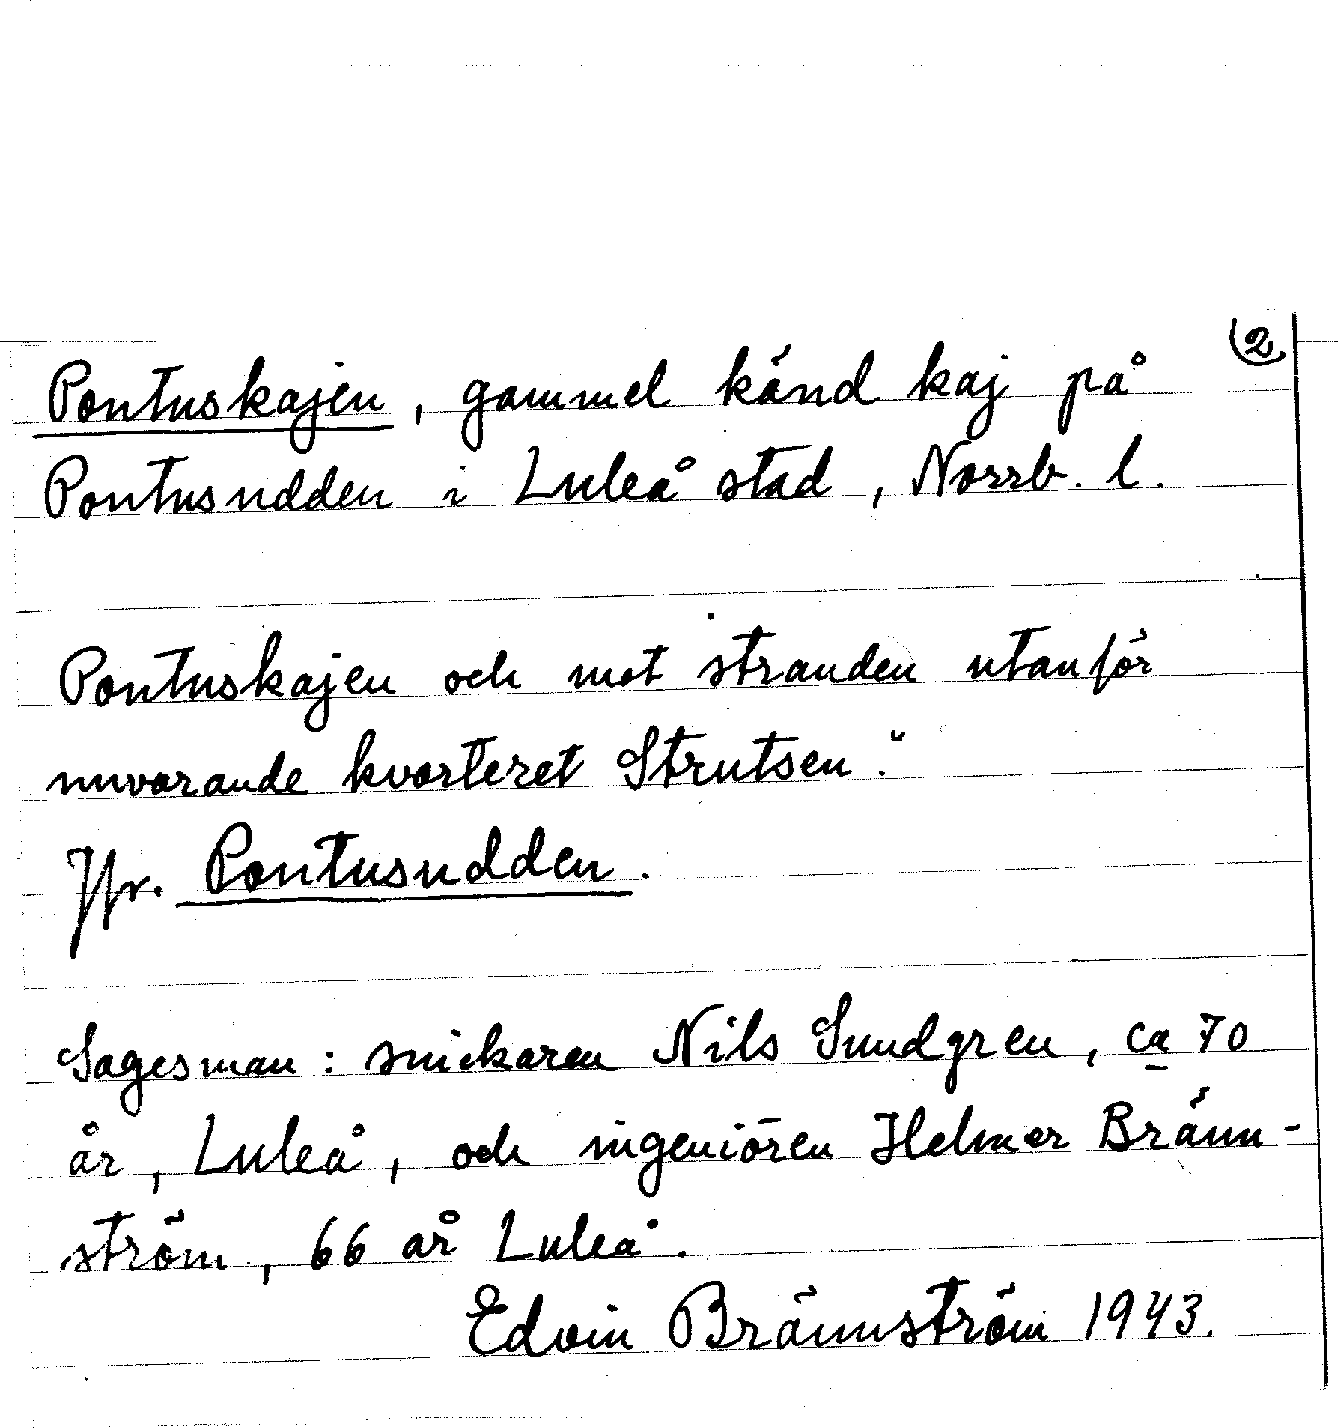 2
Pontuskajen, gammel känd kaj på
Pontusudden i Luleå stad, Norrb. l.
Pontuskajen och mot stranden utanför
nuvarande kvarteret Strutsen."
Jfr. Pontusudden.
Sagesman: snickaren Nils Sundgren, ca 70
år, Luleå, och ingeniören Helmer Bränn-
ström, 66 år Luleå.
Edvin Brännström 1943.